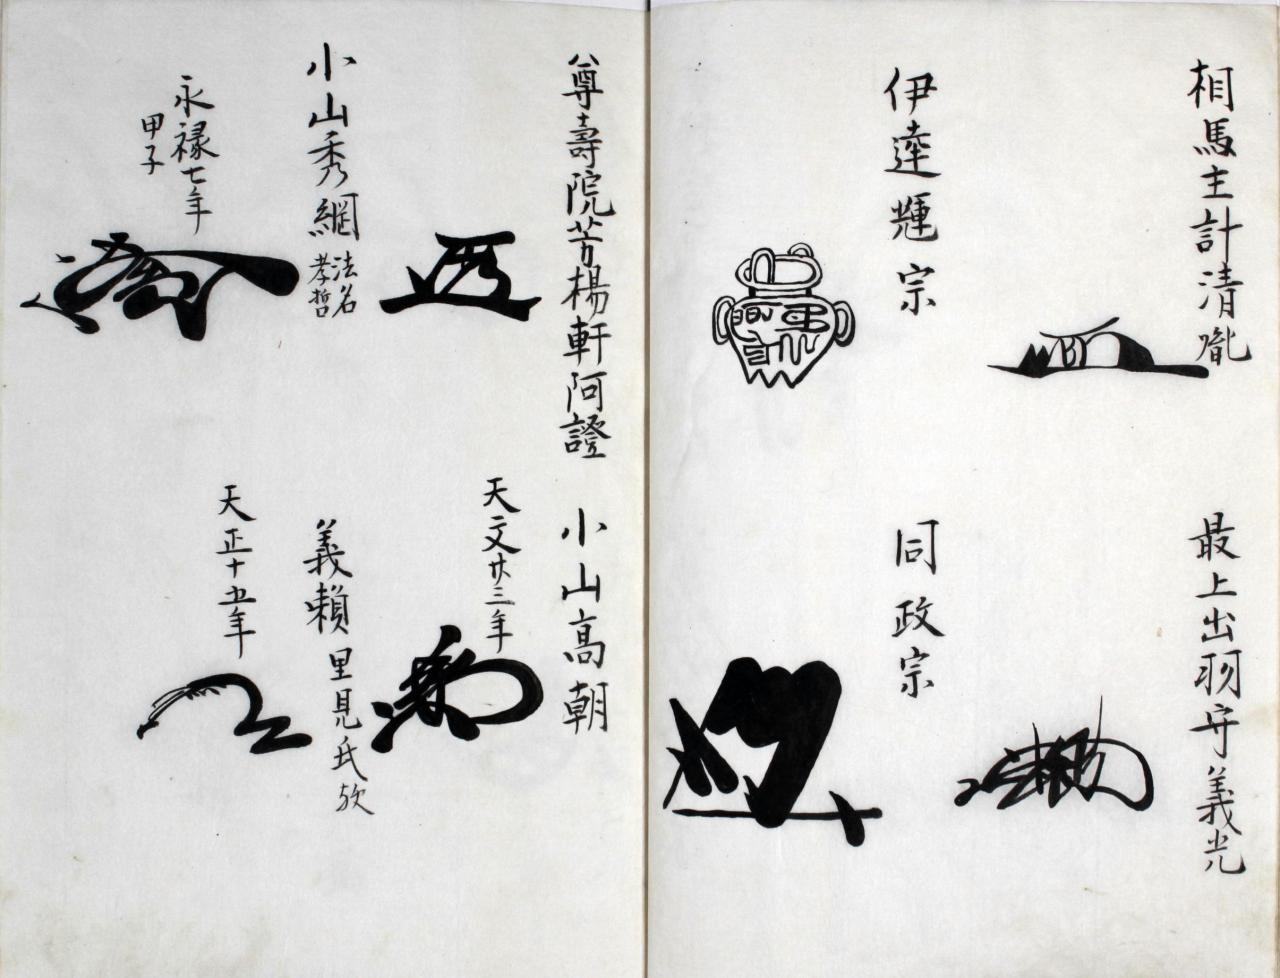 相馬主計清胤
最上出羽守義光
伊達輝宗
同政宗
尊壽院芳楊軒阿證
小山高朝
天文廿三年
小山秀綱
法名
孝哲
永禄七年
甲子
義頼
里見氏欤
天正十五年